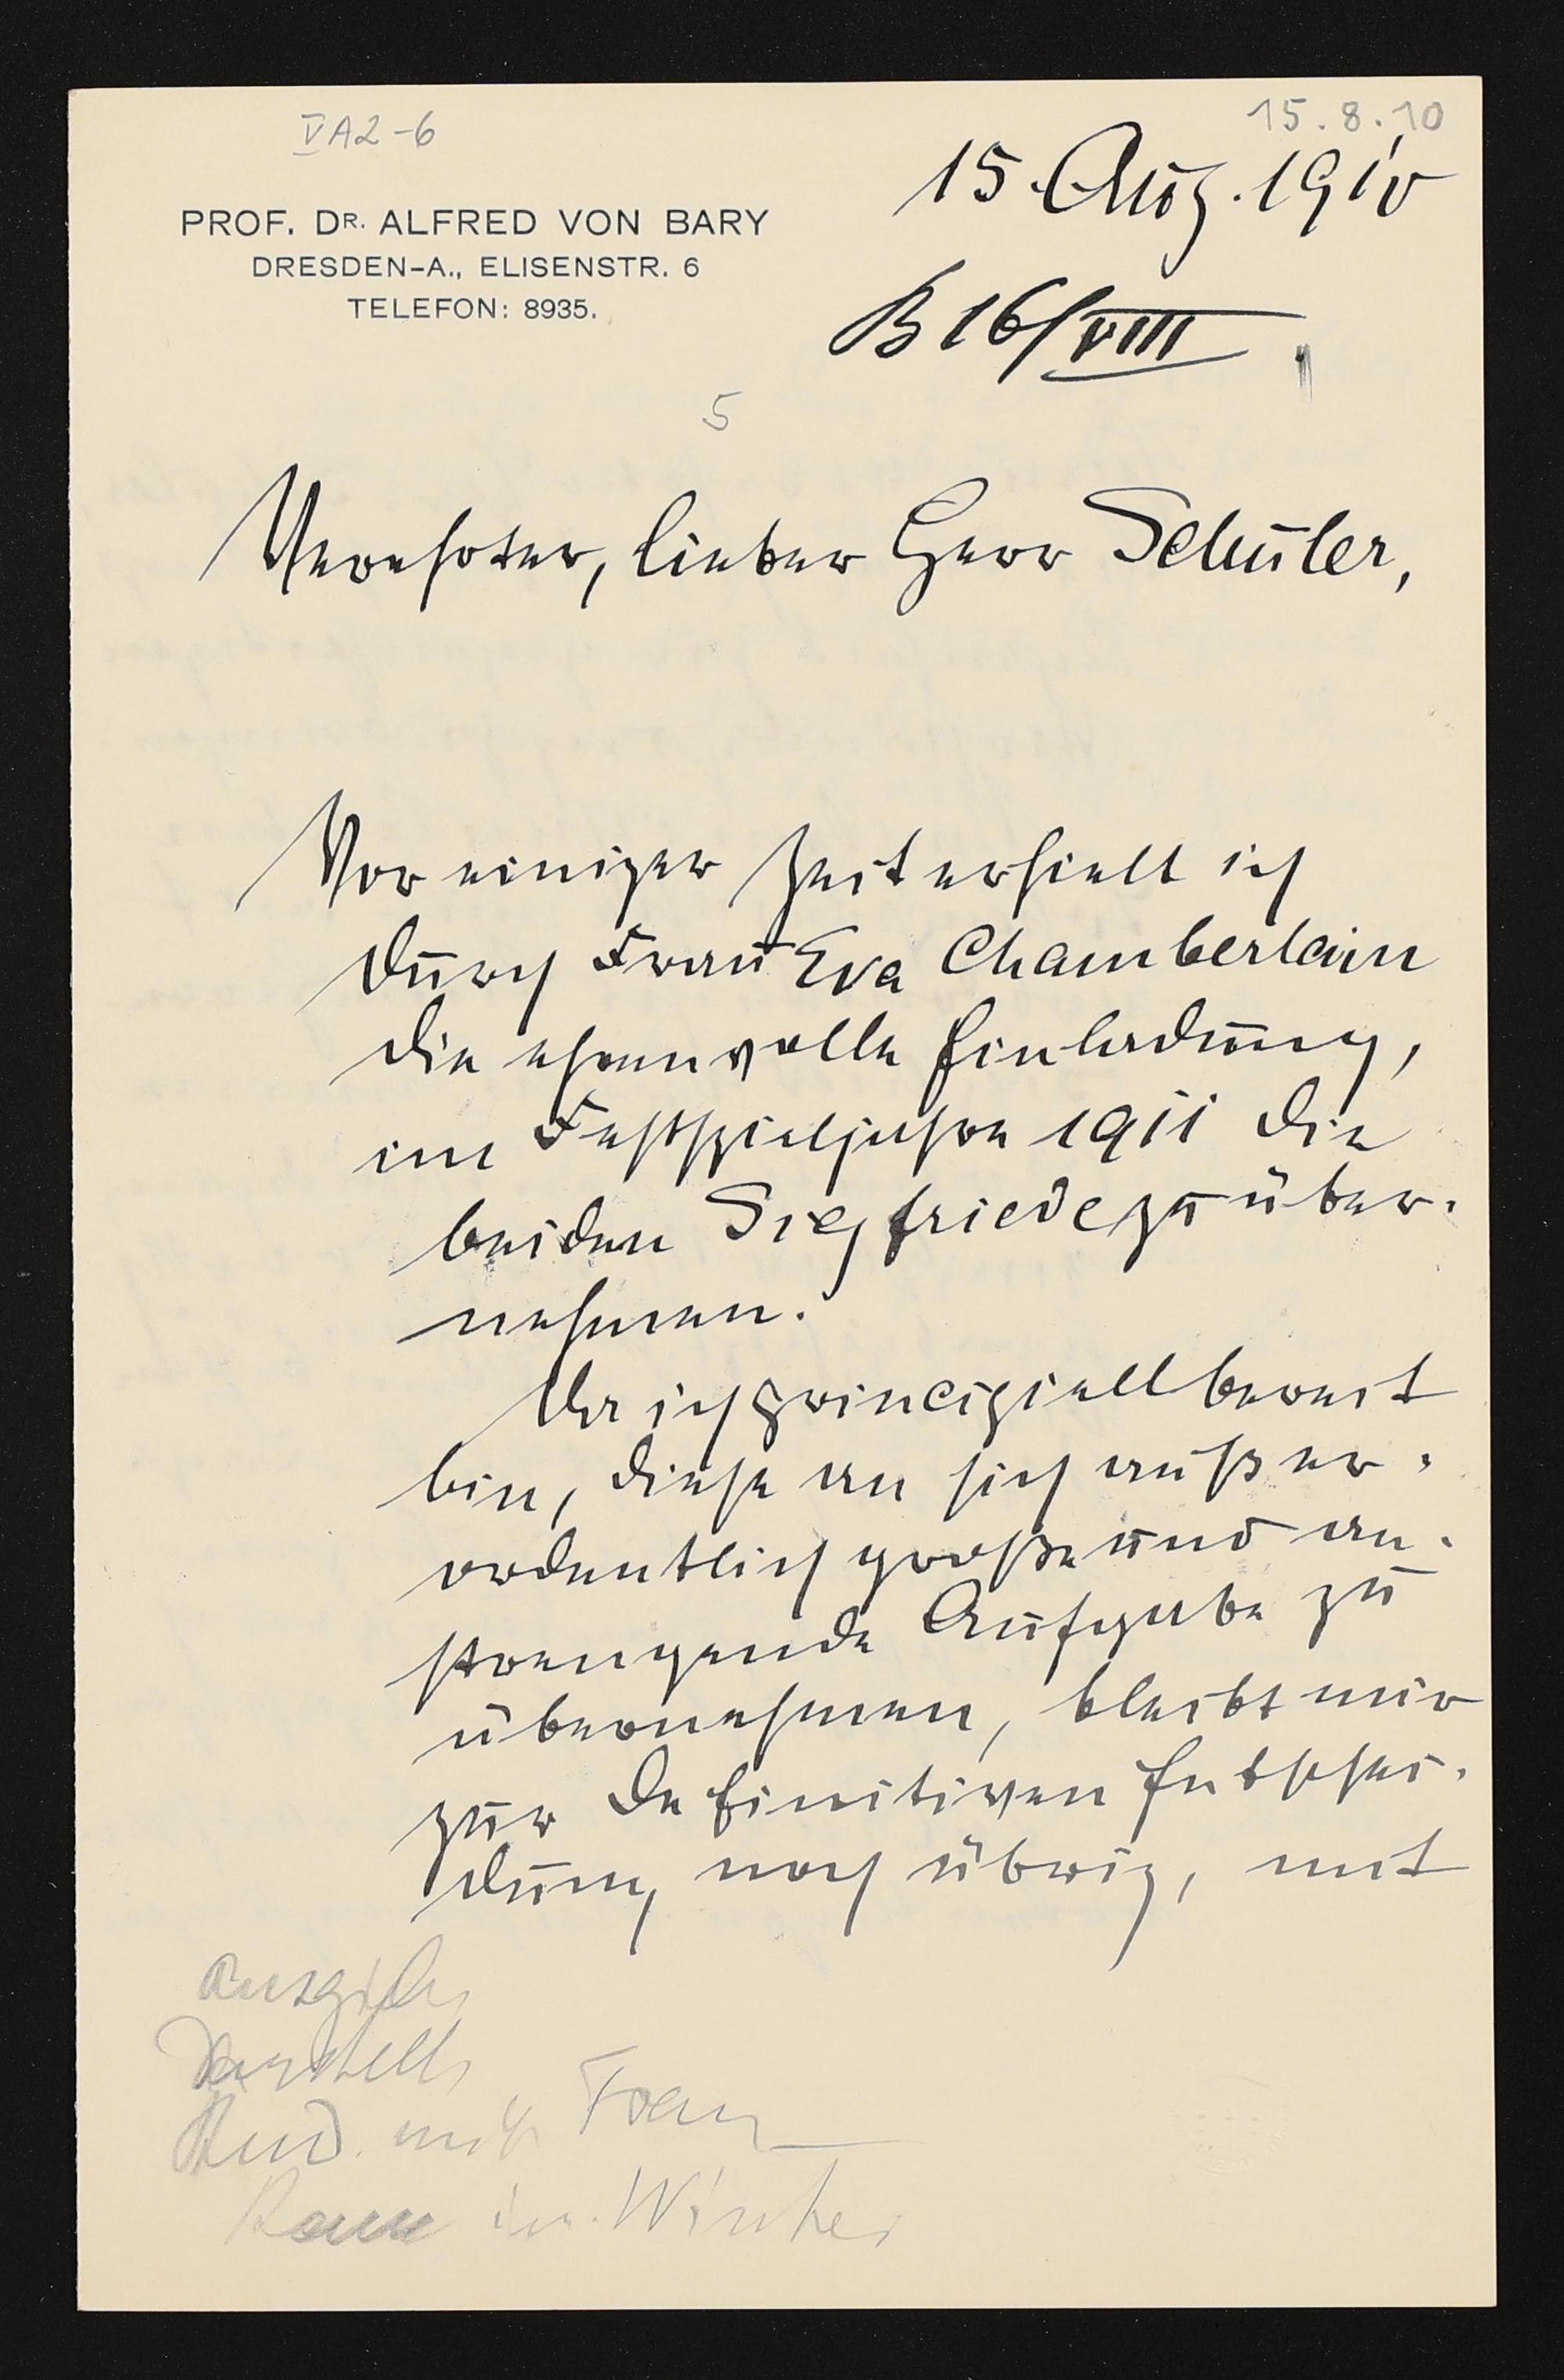 VA2-6
15.8.10
15. Aug. 1910
PROF. DR. ALFRED VON BARY
DRESDEN-A., ELISENSTR. 6
TELEFON: 8935.
B 16/VIII
5
Verehrter, lieber Herr Schuler,
Vor einiger Zeit erhielt ich
durch Frau Eva Chamberlain
die ehrenvolle Einladung,
im Festspieljahre 1911 die
beiden Siegfriede zu über-
nehmen.
Da ich principiell bereit
bin, diese an sich außer-
ordentlich große und an-
strengende Aufgabe zu
übernehmen, bleibt mir
zur definitiven Entschei-
dung noch übrig, mit
in Winter